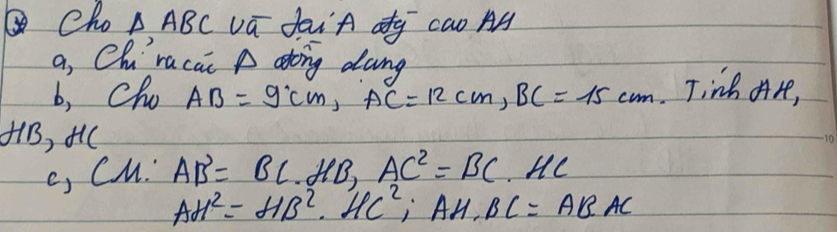 Cho Δ ABC và tại A đg̃ cao AH
a, Chỉ ra các Δ đồng dạng
b, Cho AB = 9 cm, AC = 12 cm, BC = 15 cm. Tính AH,
HB, HC
c, CM: AB² = BC. HB, AC² = BC. HC
AH² = HB². HC²; AH. BC = AB. AC
10